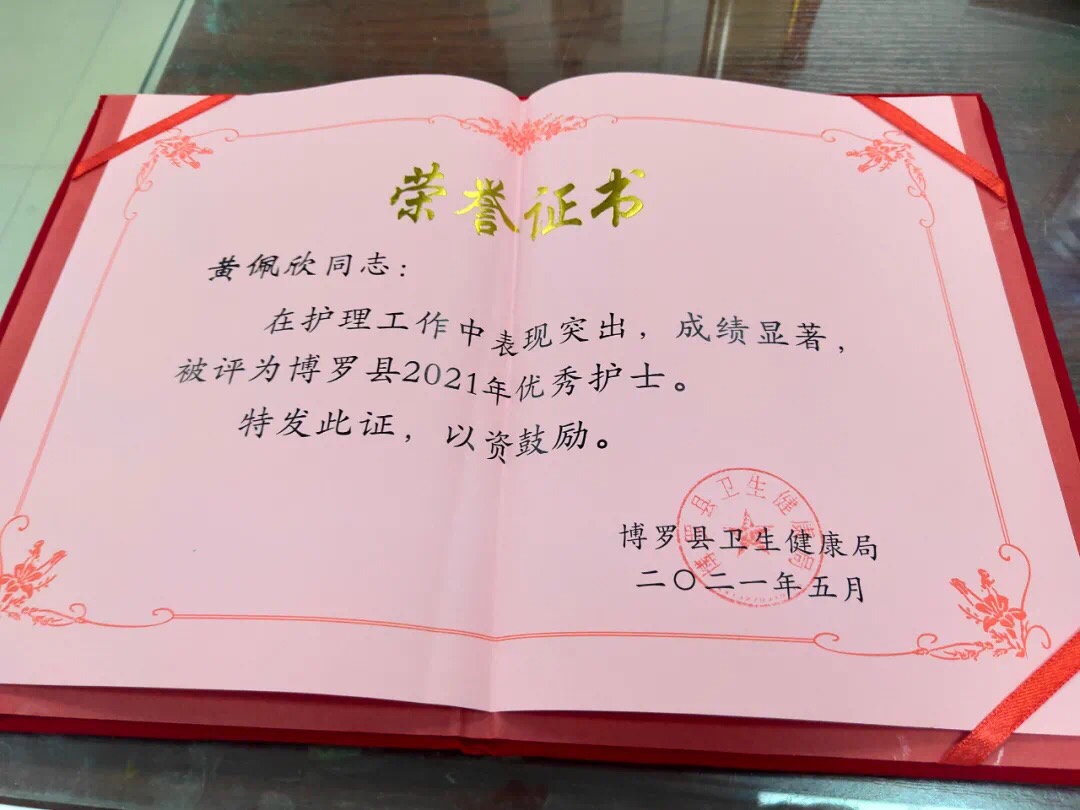 荣誉证书
黄佩欣同志：
在护理工作中表现突出，成绩显著，
被评为博罗县2021年优秀护士。
特发此证，以资鼓励。
博罗县卫生健康局
博罗县卫生健康局
二〇二一年五月